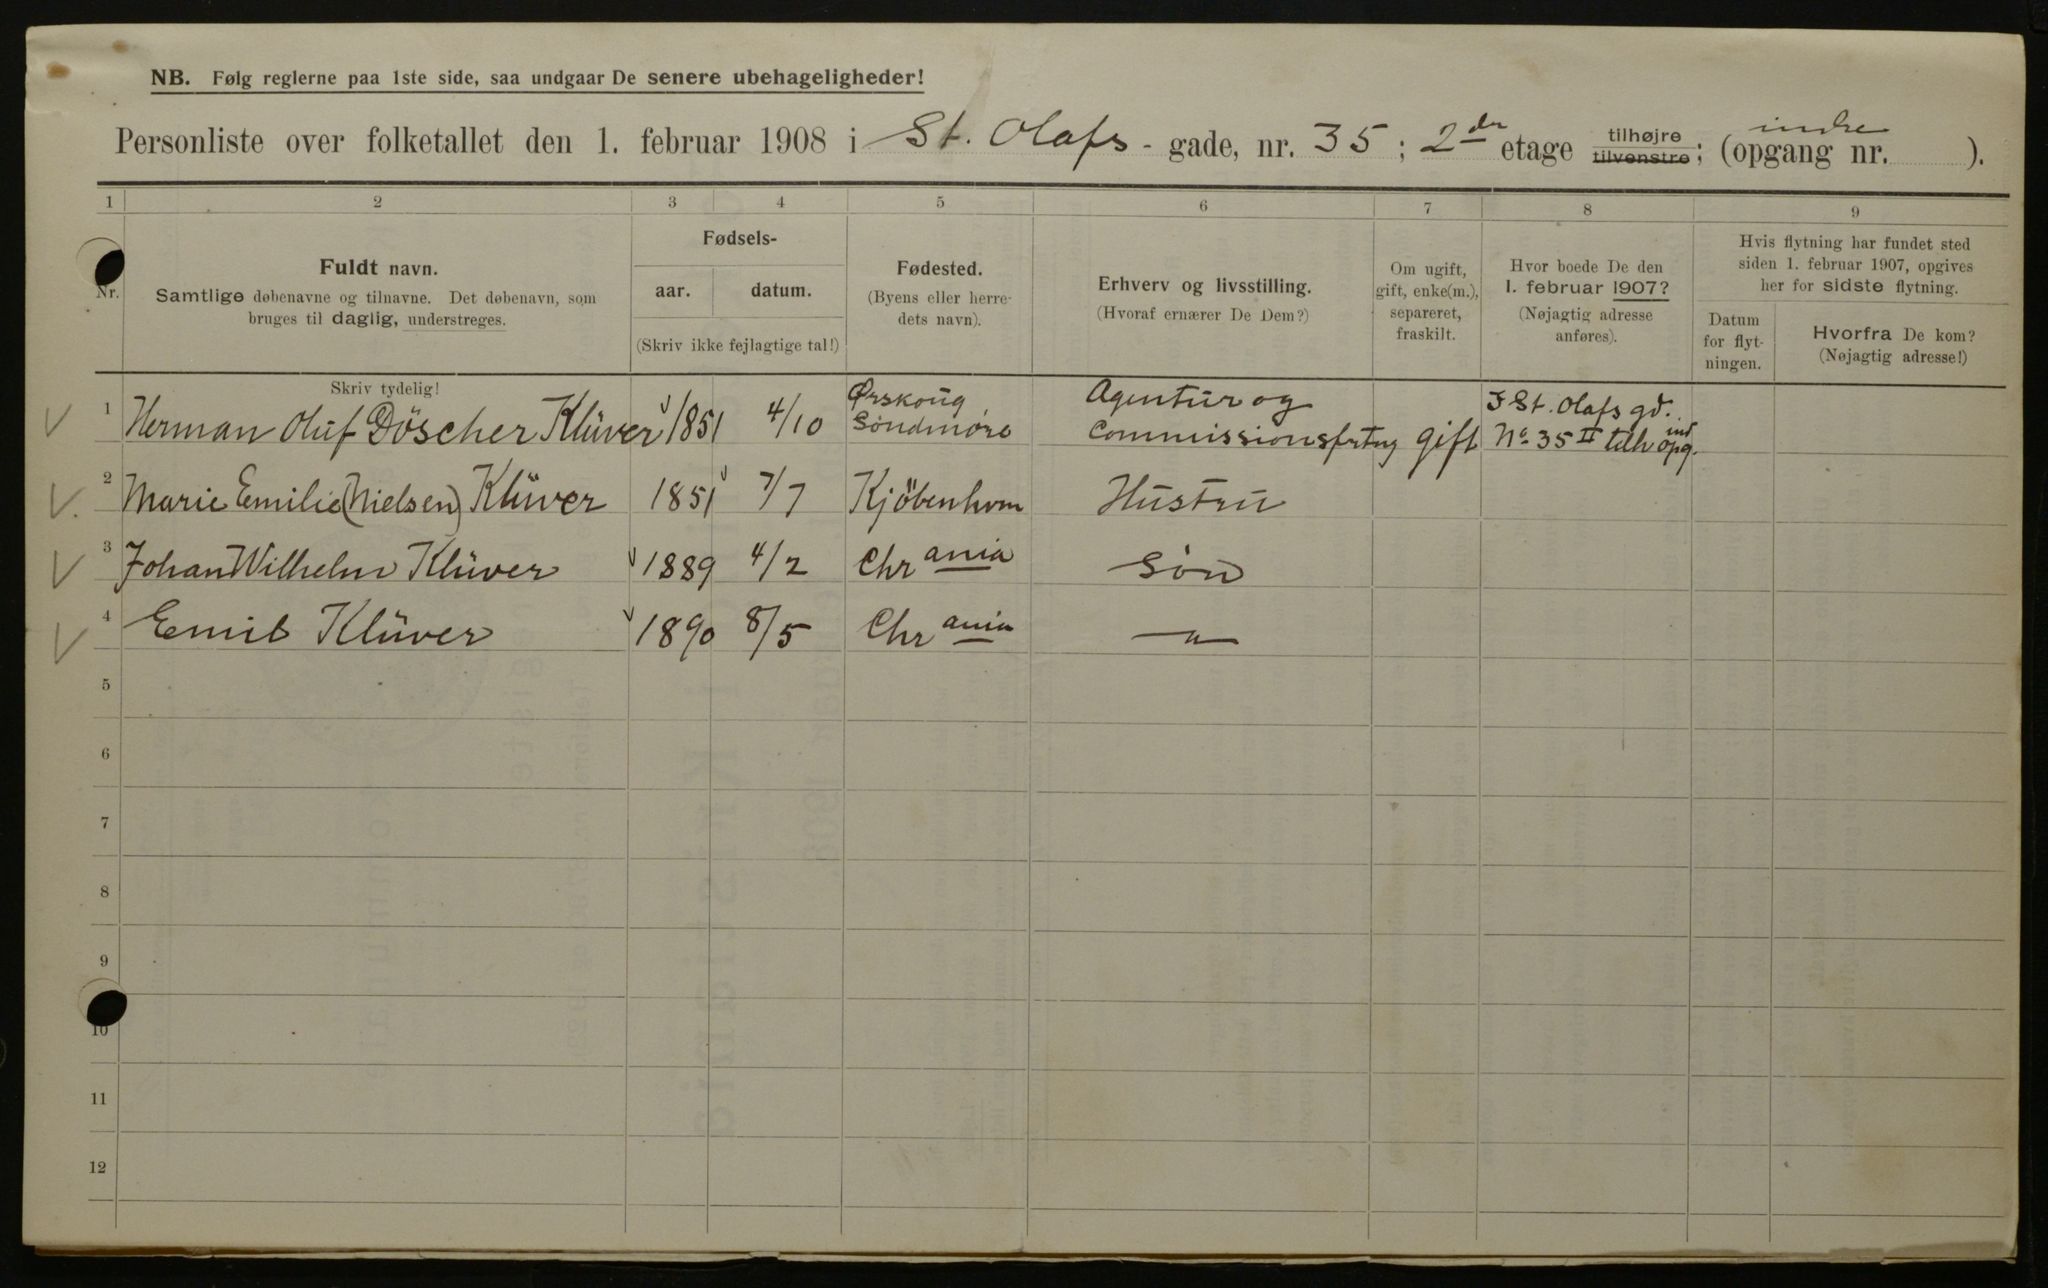 NB. Følg reglerne paa 1ste side, saa undgaar De senere ubehageligheder!
Personliste over folketallet den 1. februar 1908 i St. Olafs - gade, nr. 35 ; 2den etage tilhøjre tilvenstre; (opgang nr. indre ).
1 2 3 4 5 6 7 8 9
Nr.
Fuldt navn.
Samtlige døbenavne og tilnavne. Det døbenavn, som
bruges til daglig, understreges.
Fødsels-
aar. datum.
(Skriv ikke fejlagtige tal!)
Fødested.
(Byens eller herre-
dets navn).
Erhverv og livsstilling.
(Hvoraf ernærer De Dem?)
Om ugift,
gift, enke(m.),
separeret,
fraskilt.
Hvor boede De den
1. februar 1907?
(Nøjagtig adresse
anføres).
Hvis flytning har fundet sted
siden 1. februar 1907, opgives
her for sidste flytning.
Datum
for flyt-
ningen.
Hvorfra De kom?
(Nøjagtig adresse!)
Skriv tydelig!
1 Herman Oluf Döscher Klüver 1851 4/10 Ørskoug Söndmöre Agentur og Commissionsfrtng gift I St. Olafs gd. No 35 II tilh ind opg.
2 Marie Emilie (Nielsen) Klüver 1851 7/7 Kjöbenhvn Hustru
3 Johan Wilhelm Klüver 1889 4/2 Chrania Sön
4 Emil Klüver 1890 8/5 Chrania —"—
5
6
7
8
9
10
11
12